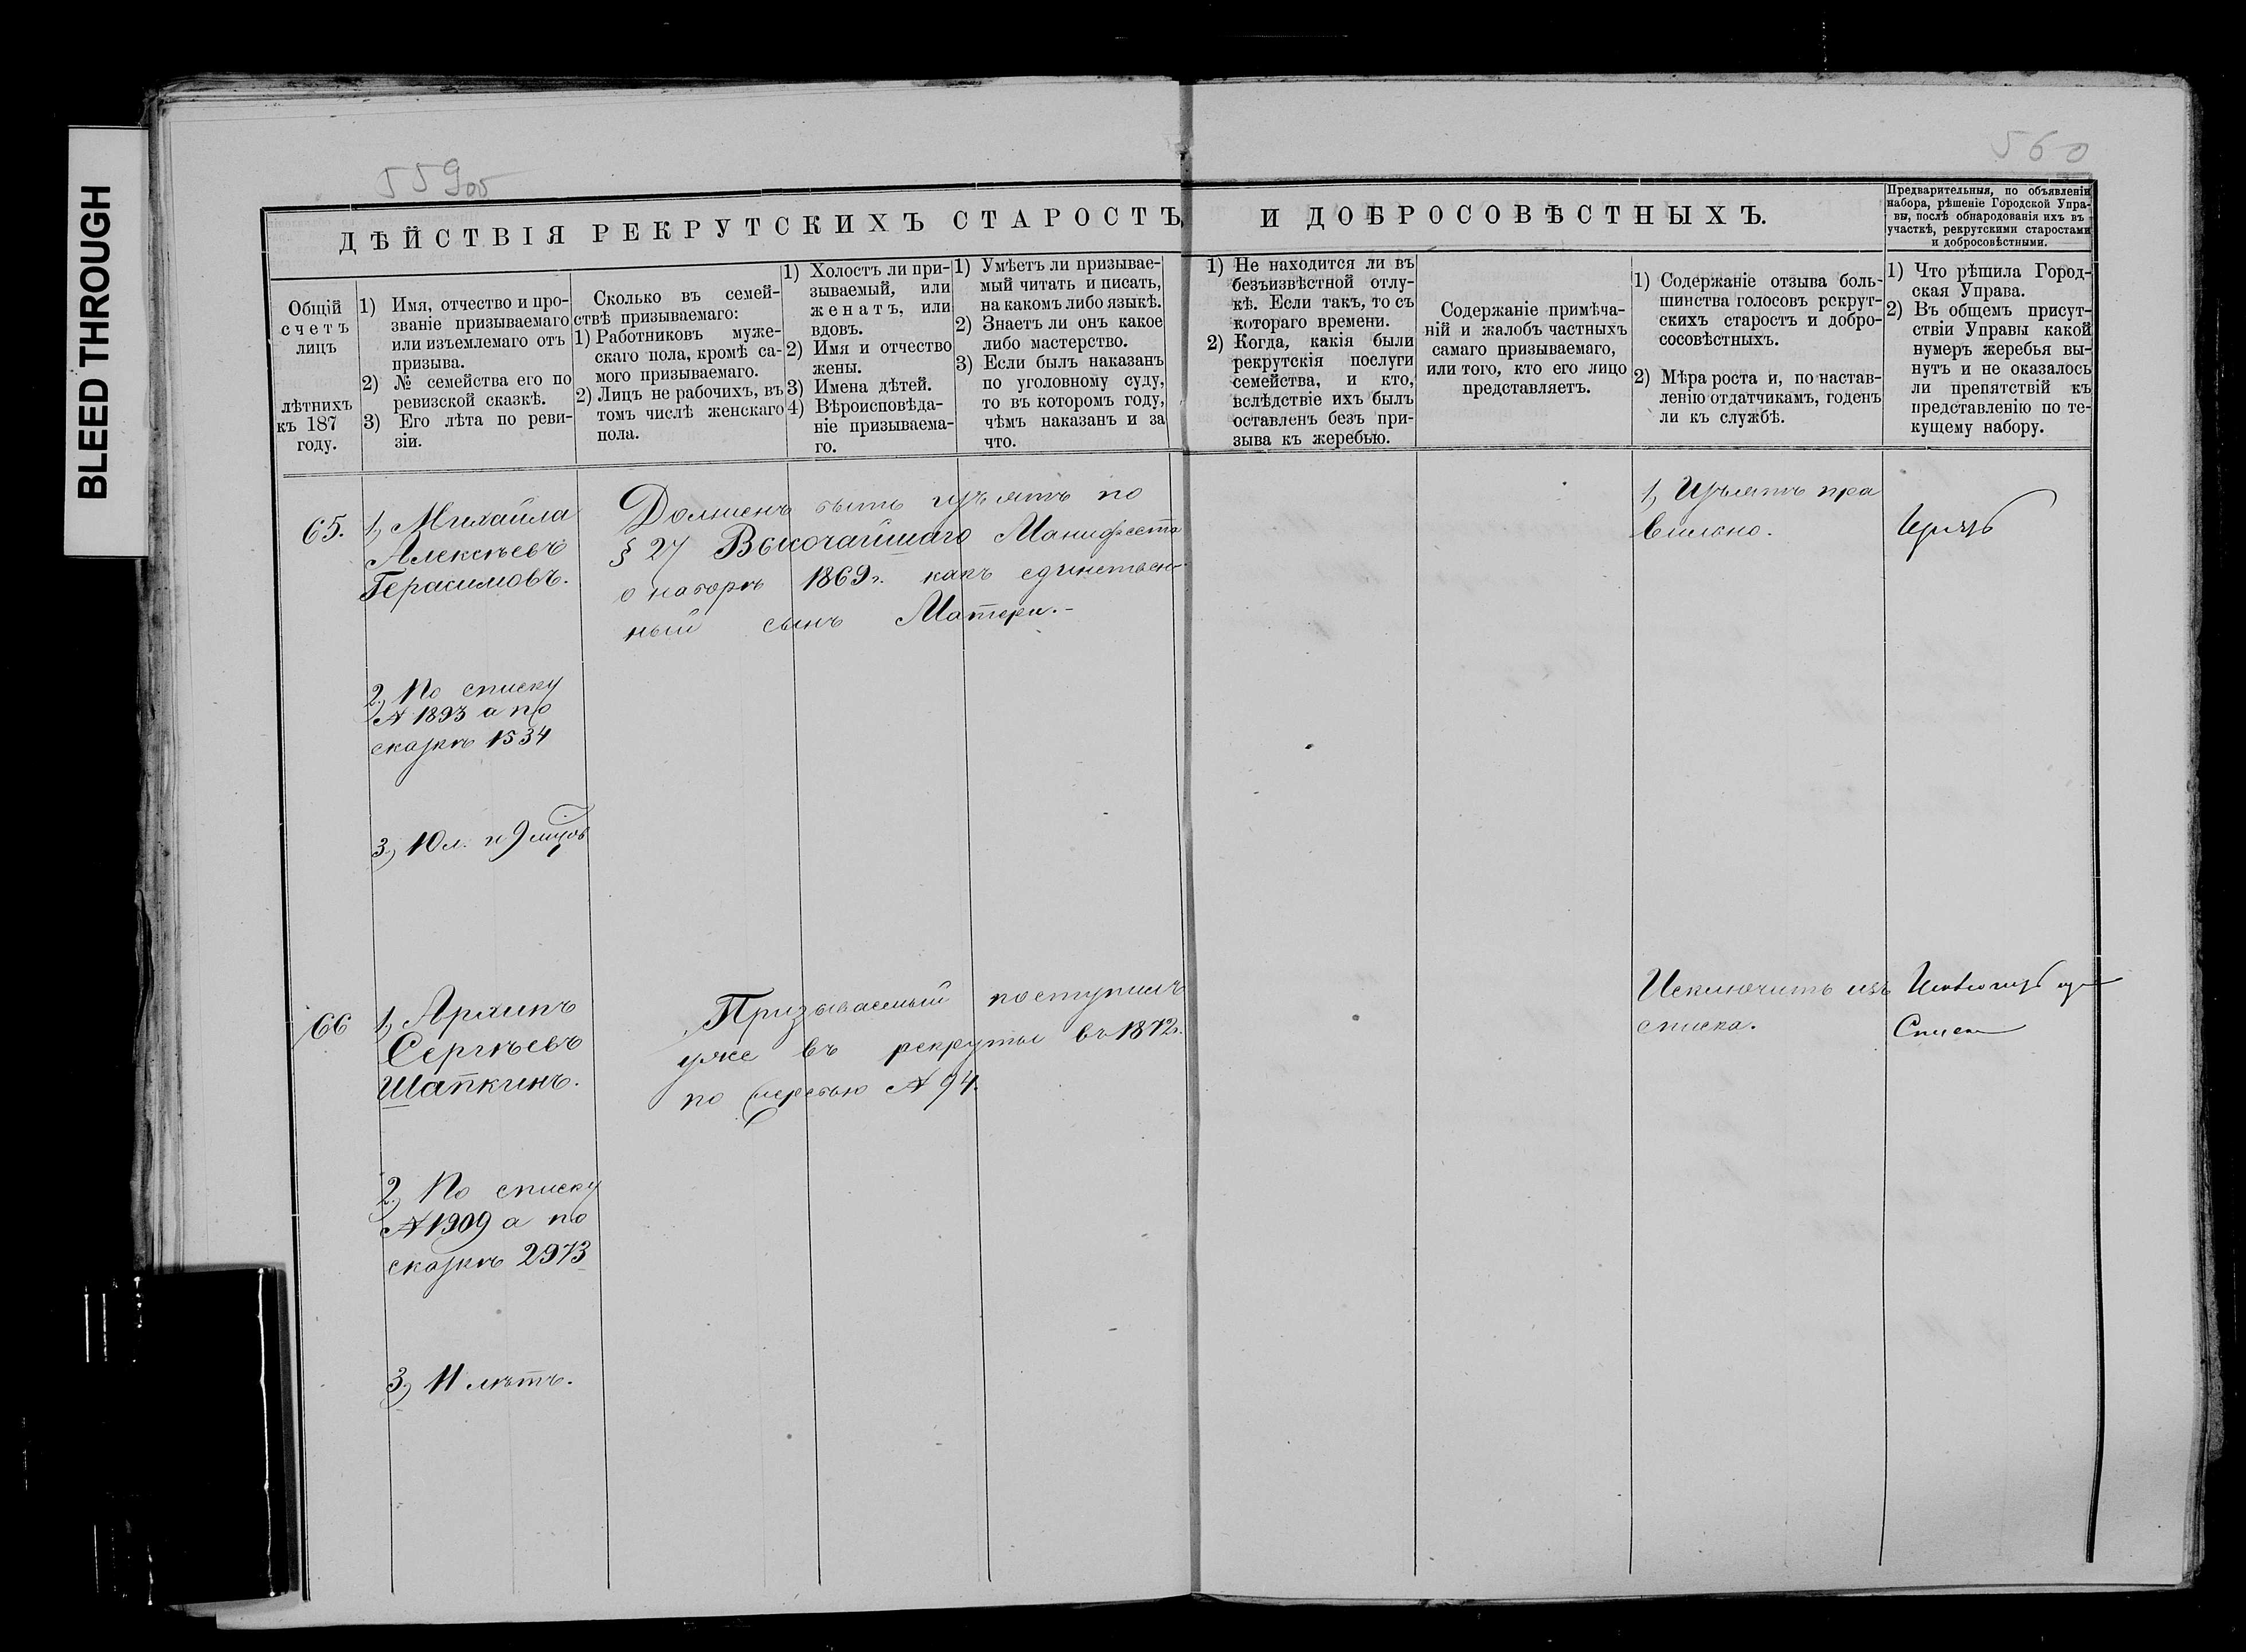 BLEED THROUGH
559об
560
ДѢЙСТВІЯ РЕКРУТСКИХЪ СТАРОСТЪ И ДОБРОСОВѢСТНЫХЪ.
Предварительныя, по объявленіи
набора, рѣшеніе Городской Упра-
вы, послѣ обнародованія ихъ въ
участкѣ, рекрутскими старостами
и добросовѣстными.
Общій
счетъ
лицъ
лѣтнихъ
къ 187
году.
1) Имя, отчество и про-
званіе призываемаго
или изъемлемаго отъ
призыва.
2) № семейства его по
ревизской сказкѣ.
3) Его лѣта по реви-
зіи.
Сколько въ семей-
ствѣ призываемаго:
1) Работниковъ муже-
скаго пола, кромѣ са-
мого призываемаго.
2) Лицъ не рабочихъ, въ
томъ числѣ женскаго
пола.
1) Холостъ ли при-
зываемый, или
женатъ, или
вдовъ.
2) Имя и отчество
жены.
3) Имена дѣтей.
4) Вѣроисповѣда-
ніе призываема-
го.
1) Умѣетъ ли призывае-
мый читать и писать,
на какомъ либо языкѣ.
2) Знаетъ ли онъ какое
либо мастерство.
3) Если былъ наказанъ
по уголовному суду,
то въ которомъ году,
чѣмъ наказанъ и за
что.
1) Не находится ли въ
безъизвѣстной отлу-
кѣ. Если такъ, то съ
котораго времени.
2) Когда, какія были
рекрутскія послуги
семейства, и кто,
вслѣдствіе ихъ былъ
оставленъ безъ при-
зыва къ жеребью.
Содержаніе примѣча-
ній и жалобъ частныхъ
самаго призываемаго,
или того, кто его лицо
представляетъ.
1) Содержаніе отзыва боль-
шинства голосовъ рекрут-
скихъ старостъ и добро-
сосовѣстныхъ.
2) Мѣра роста и, по настав-
ленію отдатчикамъ, годенъ
ли къ службѣ.
1) Что рѣшила Город-
ская Управа.
2) Въ общемъ присут-
ствіи Управы какой
нумеръ жеребья вы-
нутъ и не оказалось
ли препятствій къ
представленію по те-
кущему набору.
65.
1, Михаила
Алексѣевъ
Герасимовъ.
2, По списку
№ 1893 а по
сказкѣ 1534
3, 10 л. и 9 мцовъ
Долженъ быть изъятъ по
§ 27 Высочайшаго Манифеста
о наборѣ 1869 г. какъ единствен-
ный сынъ Матери.-
1, Изъятъ пра
вильно.
66
1, Архипъ
Сергѣевъ
Шапкинъ.
2, По списку
№ 1909 а по
сказкѣ 2973
3, 11 лѣтъ.
Призываемый поступилъ
уже въ рекруты въ 1872 г.
по жеребью № 94.
Исключить изъ
списка.